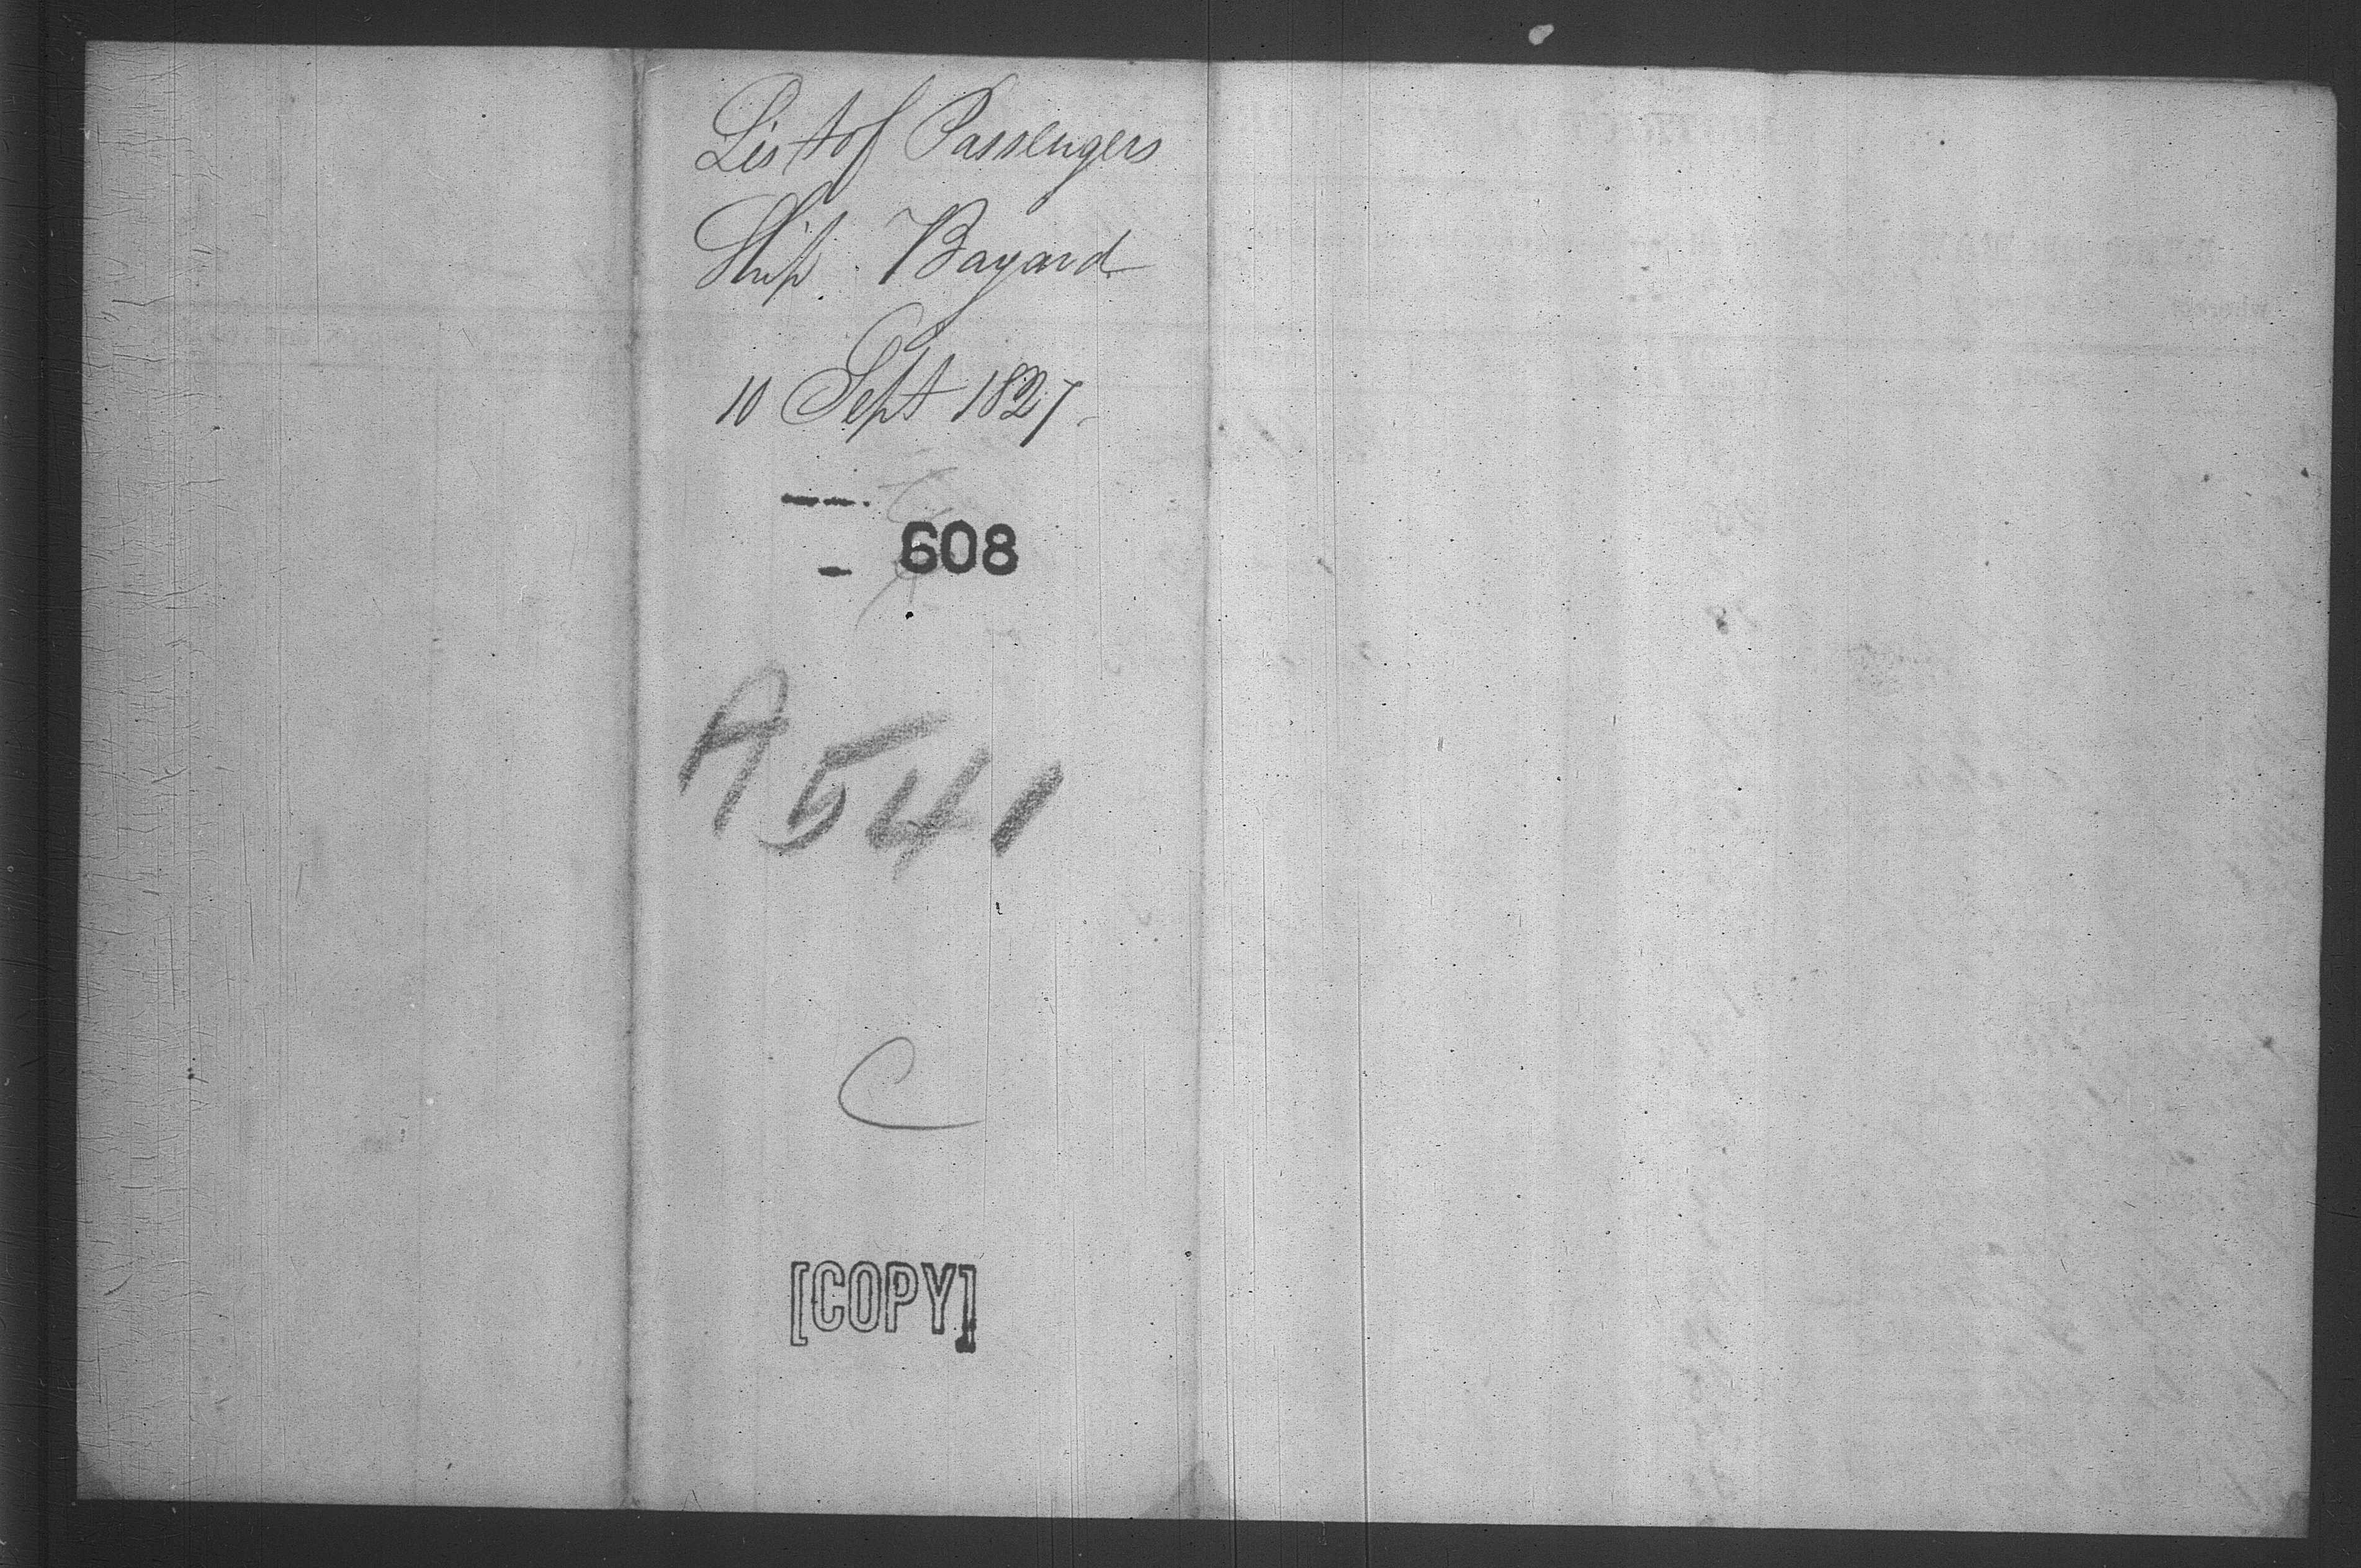 List of Passengers
Ship Bayard
10 Sept 1827
608
A 541
C
[COPY]